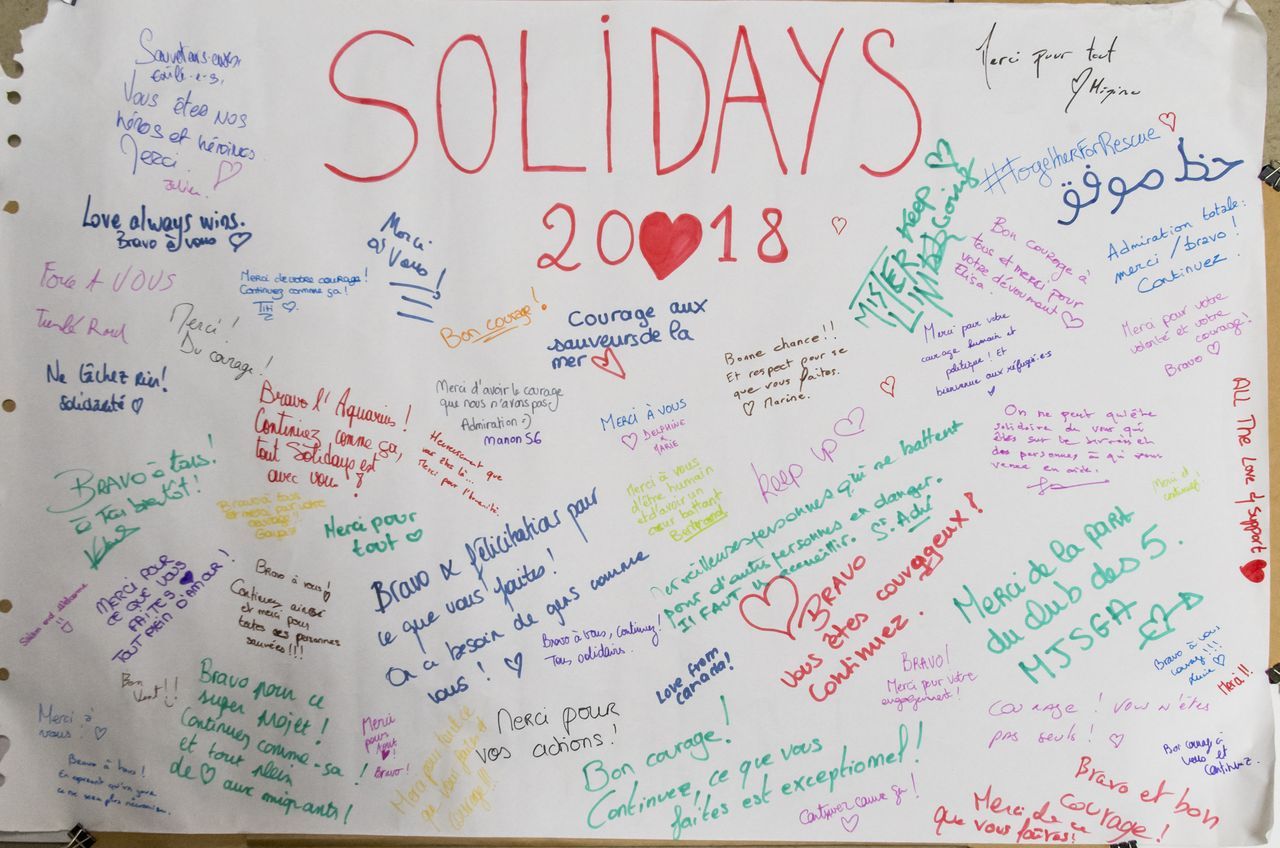 SOLIDAYS
20 18
Merci pour tout
Vous êtes nos
héros et héroïnes
Merci
Julien
#TogetherForRescue
حظ موفق
Love always wins.
Bravo à vous
Merci
à
Vous !
MISTER Keep
Going
Bon courage à
tous et merci pour
votre dévouement
Elisa.
Admiration totale :
merci / bravo !
Continuez.
Force A VOUS
Merci de votre courage !
Continuez comme ça !
Titi
Merci !
Du courage !
Bon courage !
Courage aux
sauveurs de la
mer
Bonne chance !!
Et respect pour ce
que vous faites.
Marine.
Merci pour votre
courage humain et
politique ! Et
bienvenue aux réfugié.e.s
Merci pour votre
volonté et votre
courage !
Bravo
Ne lâchez rien !
Solidarité
Bravo l'Aquarius !
Continuez comme ça,
tout Solidays est
avec vous !
Merci d'avoir le courage
que nous n'avons pas
Admiration :)
Manon 56
Heureusement que
vous êtes là...
Merci pour l'humanité.
MERCI À VOUS
DELPHINE
MARIE
keep up
On ne peut qu'être
solidaire de vous qui
êtes sur le terrain et
des personnes à qui vous
venez en aide.
ALL The Love & Support
BRAVO à tous !
à très bientôt !
Bravo à tous
et merci pour votre
courage !
Merci pour
tout
Merci à vous
d'être humain
et d'avoir un
cœur battant
Bertrand
Merveilleuses personnes qui se battent
pour d'autres personnes en danger.
Il FAUT les accueillir.
Bravo & félicitations pour
ce que vous faites !
On a besoin de gens comme
vous !
BRAVO
vous êtes courageux !
Continuez.
Merci de la part
du club des 5.
MJSGA
MERCI POUR
CE QUE
FAITES VOUS
TOUT PLEIN D'AMOUR !
Bravo à vous !
Continuez ainsi
et merci pour
toutes ces personnes
sauvées !!!
Bravo à vous, continuez !
Tous solidaires.
Love from
Canada !
BRAVO !
Merci pour votre
engagement !
Bravo à vous
Merci !!
Bon
vent !!
Bravo pour ce
super projet !
Continuez comme-sa !
et tout plein
de aux migrants !
Merci à
vous !
Merci
pour
tout
Bravo !
Merci pour
vos actions !
Bon courage !
Continuez, ce que vous
faites est exceptionnel !
COURAGE ! VOUS N'ÊTES
PAS seuls !
Bon courage à
vous et
continuez.
Bravo à tous !
Continuez comme ça !
Bravo et bon
courage !
Merci de ce
que vous faîtes !